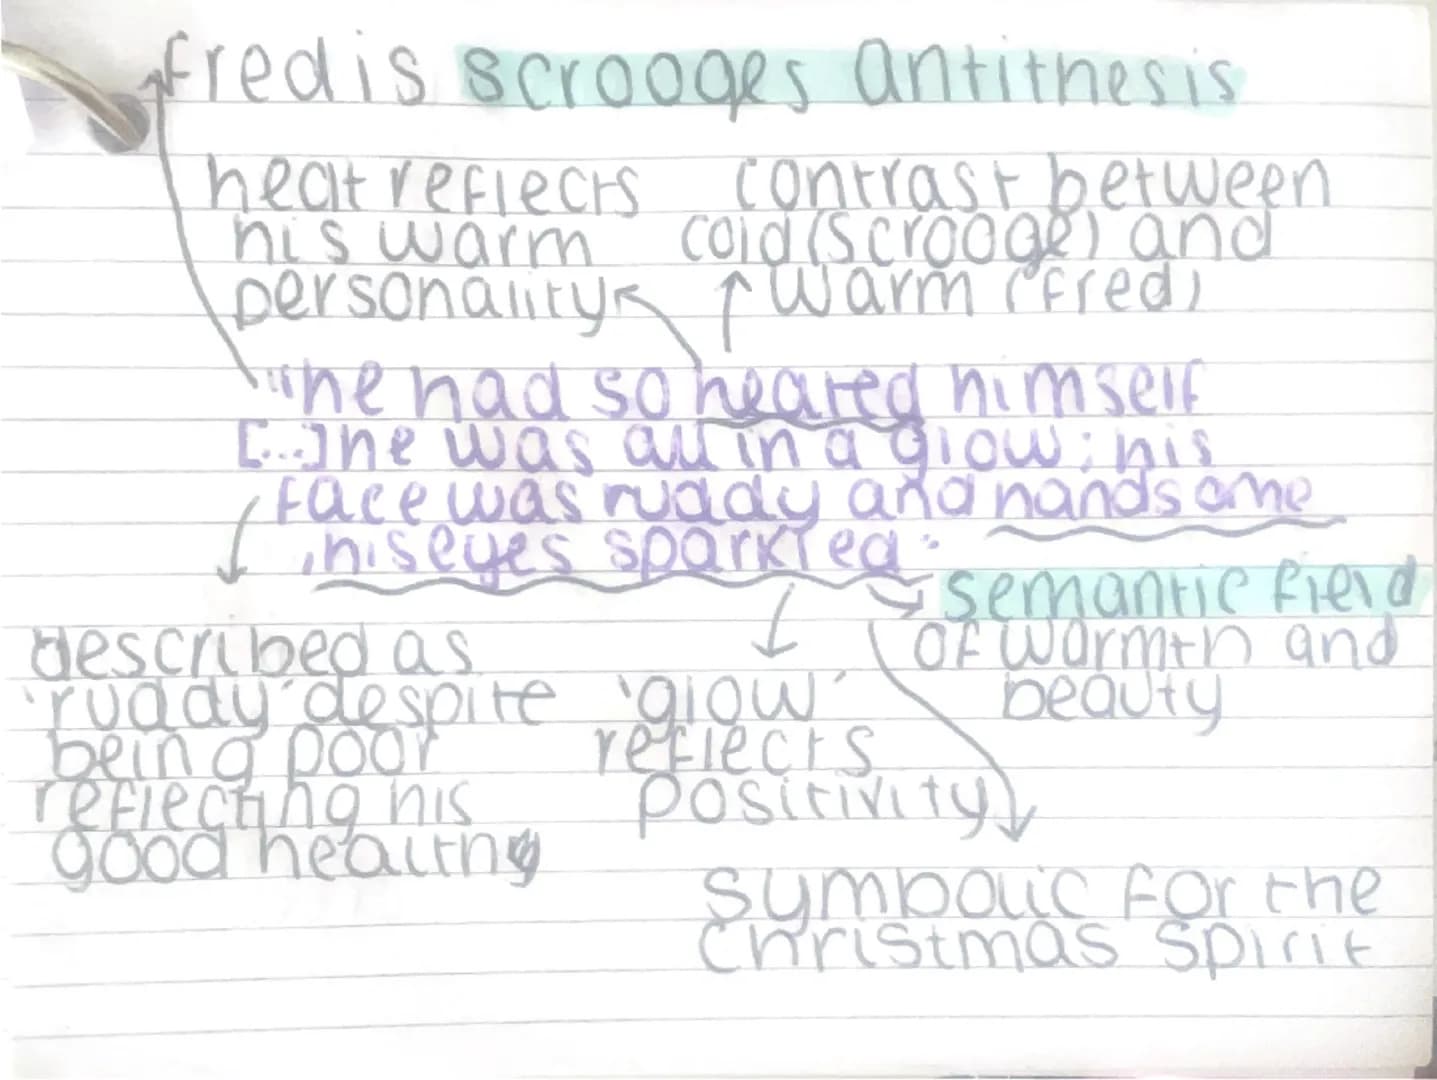 fred is scrooges antithesis
heat reflects
his warm
personality
contrast between
cold (scrooge) and
warm (fred)
"he had so heated himself
[...] he was all in a glow; his
face was ruddy and handsome
, his eyes sparkled"
semantic field
of warmth and
beauty
described as
'ruddy' despite
being poor
reflecting his
good health
'glow'
reflects
positivity
symbolic for the
christmas spirit